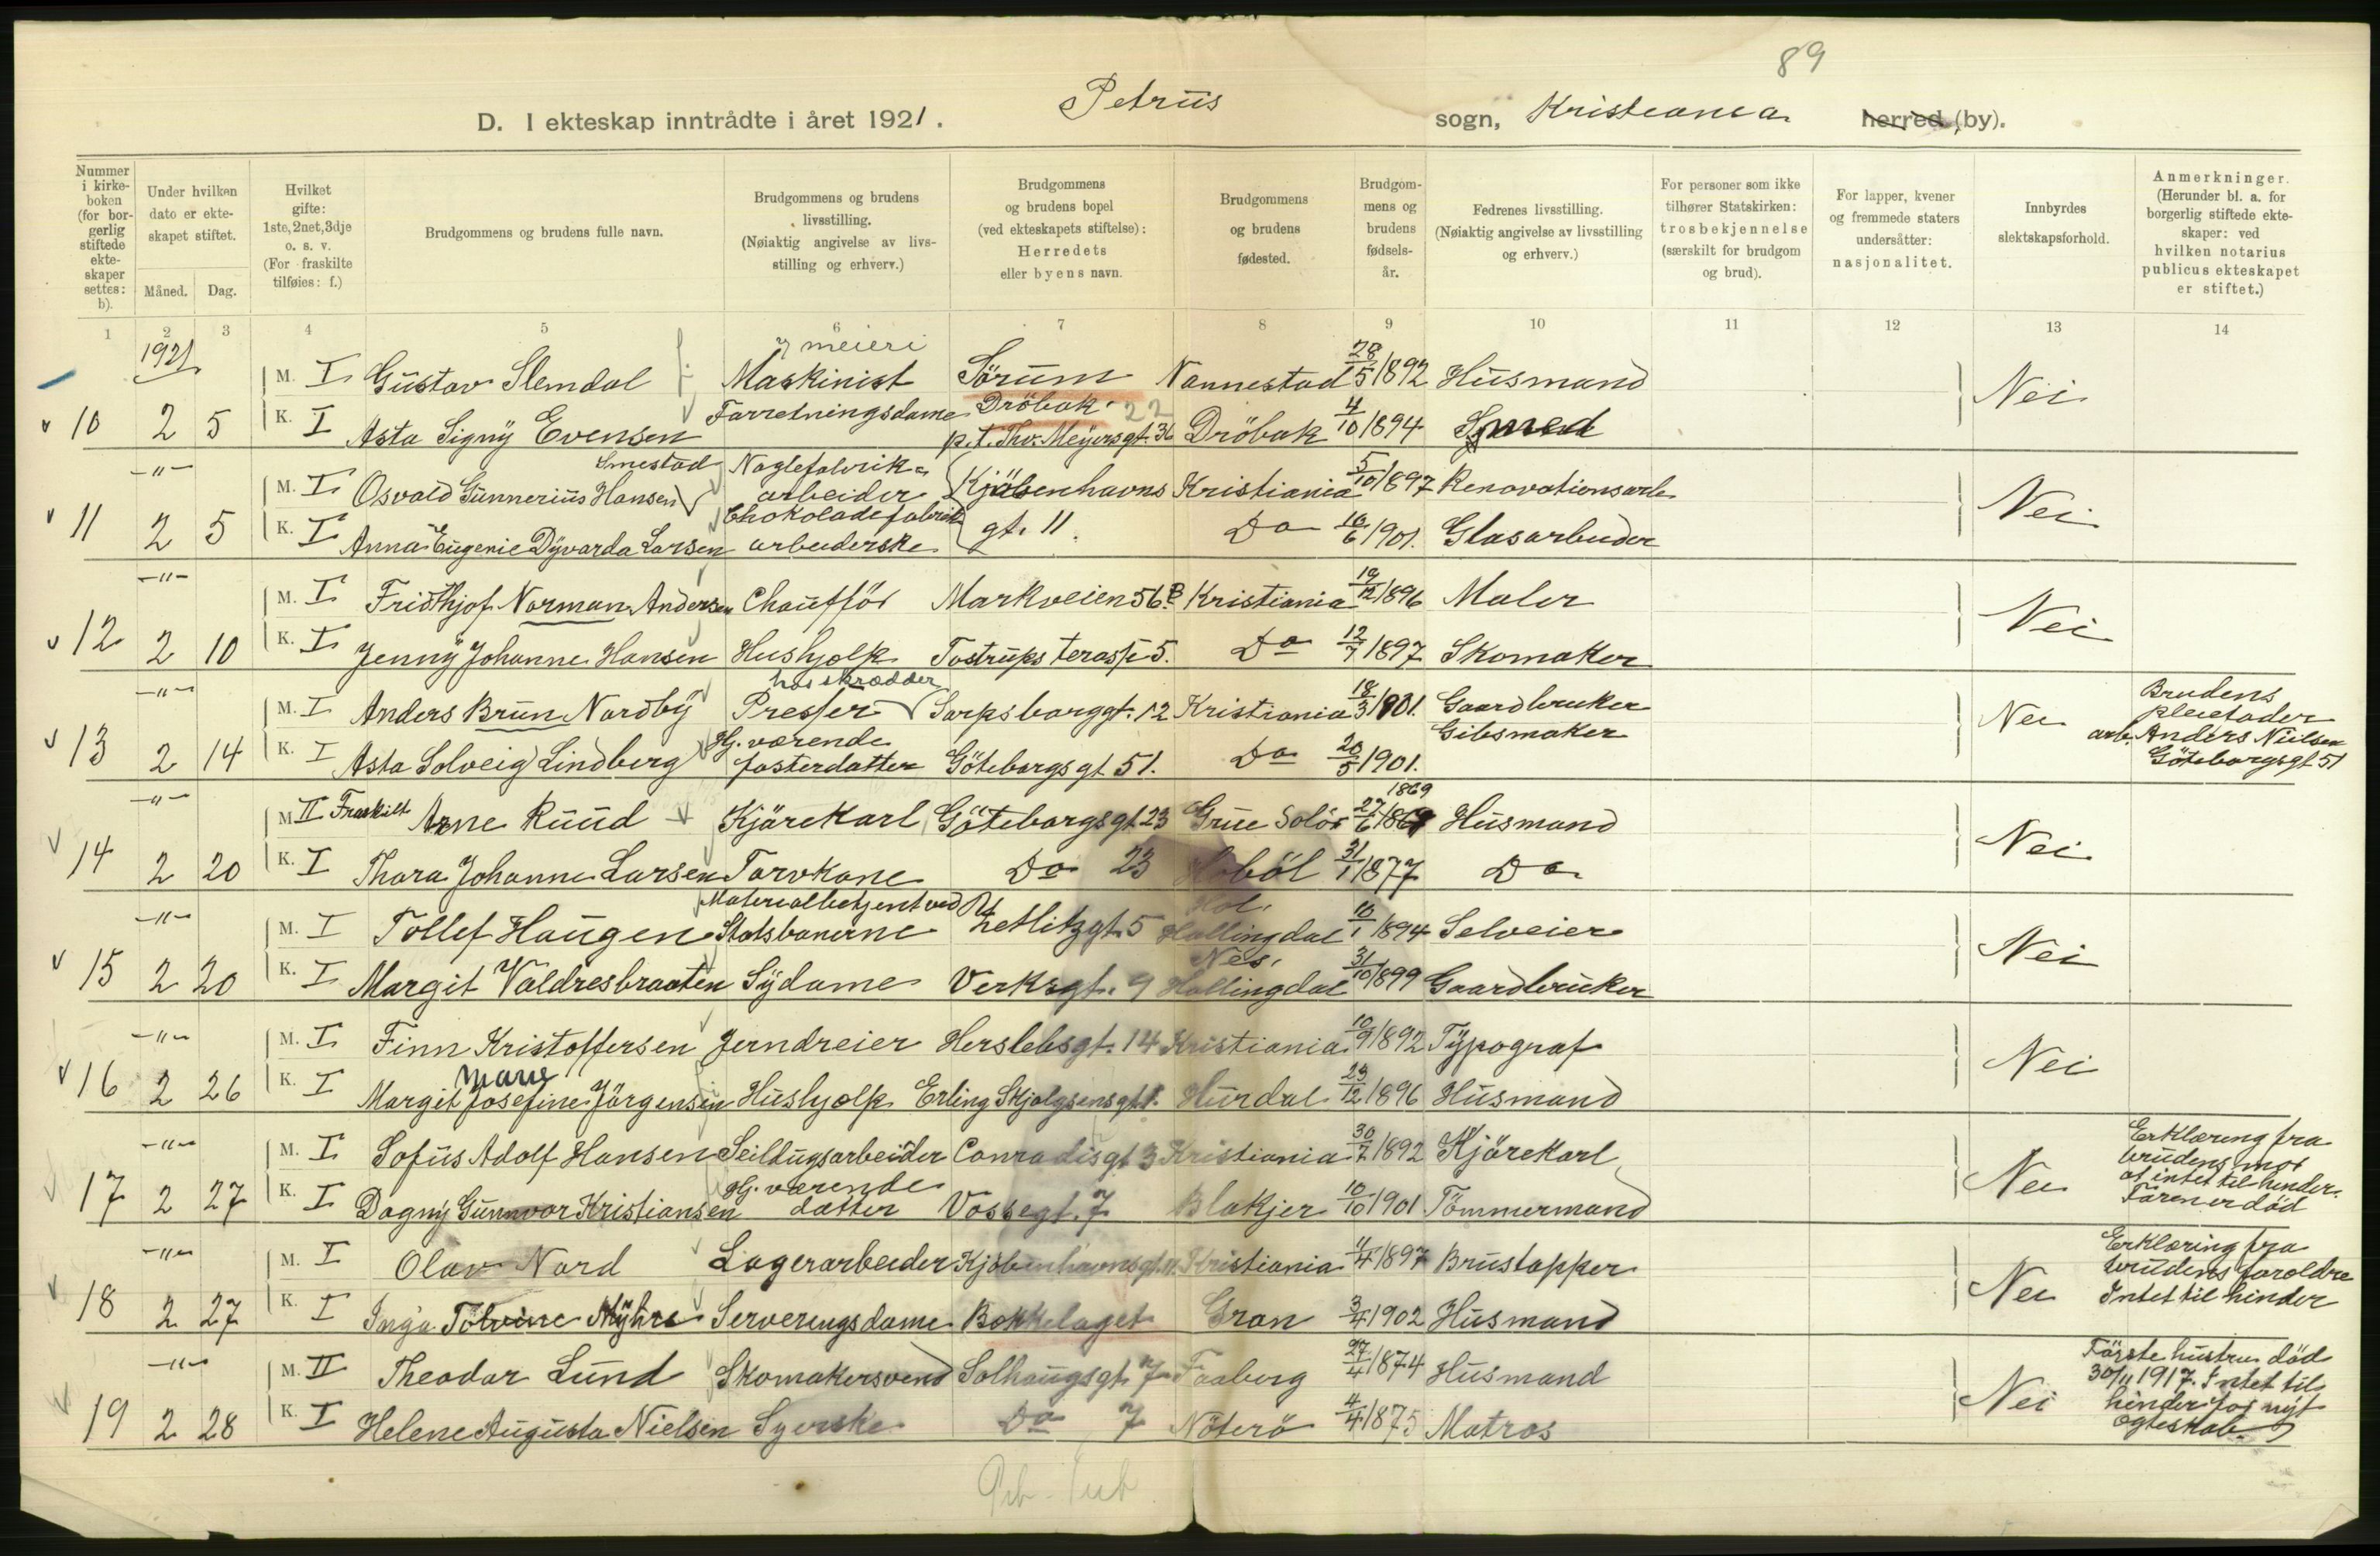 89
D. I ekteskap inntrådte i året 1921. Petrus sogn, Kristiania herred (by).
Nummer i kirkeboken (for borgerlig stiftede ekteskaper settes: b).
Under hvilken dato er ekteskapet stiftet.
Måned. Dag.
Hvilket gifte: 1ste, 2net, 3dje o. s. v. (For fraskilte tilføies: f.)
Brudgommens og brudens fulle navn.
Brudgommens og brudens livsstilling. (Nøiaktig angivelse av livsstilling og erhverv.)
Brudgommens og brudens bopel (ved ekteskapets stiftelse): Herredets eller byens navn.
Brudgommens og brudens fødested.
Brudgommens og brudens fødselsår.
Fedrenes livsstilling. (Nøiaktig angivelse av livsstilling og erhverv.)
For personer som ikke tilhører Statskirken: trosbekjennelse (særskilt for brudgom og brud).
For lapper, kvener og fremmede staters undersåtter: nasjonalitet.
Innbyrdes slektskapsforhold.
Anmerkninger. (Herunder bl. a. for borgerlig stiftede ekteskaper: ved hvilken notarius publicus ekteskapet er stiftet.)
1 2 3 4 5 6 7 8 9 10 11 12 13 14
1921
i meieri
M. I Gustav Slemdal Maskinist Sörum Nannestad 28/5 1892 Husmand Nei
Dröbak 22
10 2 5 K. I Asta Signÿ Evensen Forretningsdame p.t. Thv. Meÿersgt. 36 Dröbak 4/10 1894 Smed
-"- Smestad
M. I Osvald Gunnerius Hansen Naglefabrikarbeider Kjöbenhavns Kristiania 5/10 1897 Renovationsarb. Nei
11 2 5 K. I Anna Eugenie Dÿvarda Larsen Chokoladefabrikarbeiderske gt. 11. Do 10/6 1901. Glasarbeider
-"-
M. I Fridthjof Norman Andersen Chaufför Markveien 56 B Kristiania 19/12 1896 Maler Nei
12 2 10 K. I Jennÿ Johanne Hansen Hushjelp Tostrups terasse 5. Do 12/7 1897 Skomaker
-"- hos skrædder
M. I Anders Brun Nordbÿ Presser Sarpsborggt. 12 Kristiania 18/3 1901. Gaardbruker Nei
13 2 14 K. I Asta Solveig Lindberg Hj. værende fosterdatter Göteborgsgt. 51. Do 20/5 1901. Gibsmaker
Brudens
pleiefader
arb. Anders Nielsen
Göteborgsgt 51
-"- 1869
M. II Fraskilt Arne Ruud Kjörekarl Göteborgsgt. 23 Grue Solör 27/6 1869 Husmand Nei
14 2 20 K. I Thora Johanne Larsen Torvkone Do 23 Hoböl 31/1 1877 Do
-"- Materialbetjent ved Hol.
M. I Tollef Haugen Statsbanerne Zetlitzgt. 5 Hallingdal 10/1 1894 Selveier Nei
Nes.
15 2 20 K. I Margit Valdresbraaten Sÿdame Verksgt. 9 Hallingdal 31/10 1899 Gaardbruker
-"-
M. I Finn Kristoffersen Jerndreier Herslebsgt. 14 Kristiania 10/9 1892 Tÿpograf Nei
Marie
16 2 26 K. I Margit Josefine Jörgensen Hushjelp Erling Skjalgsensgt 1. Hurdal 23/12 1896 Husmand
-"-
M. I Sofus Adolf Hansen Seildugsarbeider Conradisgt 3 Kristiania 30/7 1892 Kjörekarl Nei
17 2 27 K. I Dagnÿ Gunnvor Kristiansen Hj. værende datter Vossegt. 7 Blakjer 10/10 1901 Tömmermand
Erklæring fra
brudens mor
at intet til hinder.
Faren er död
-"-
M. I Olav Nord Lagerarbeider Kjöbenhavnsgt. 11. Kristiania 11/4 1897 Brustapper Nei
18 2 27 K. I Inga Tolvine Mÿhre Serveringsdame Bekkelaget Gran 3/4 1902 Husmand
Erklæring fra
brudens foreldre
Intet til hinder
-"-
M. II Theodor Lund Skomakersvend Solhaugsgt. 7 Faaberg 27/4 1874 Husmand Nei
19 2 28 K. I Helene Augusta Nielsen Syerske Do 7 Nöterö 4/4 1875 Matros
Förste hustru död
30/11 1917. Intet til
hinder for nÿt
egteskab.